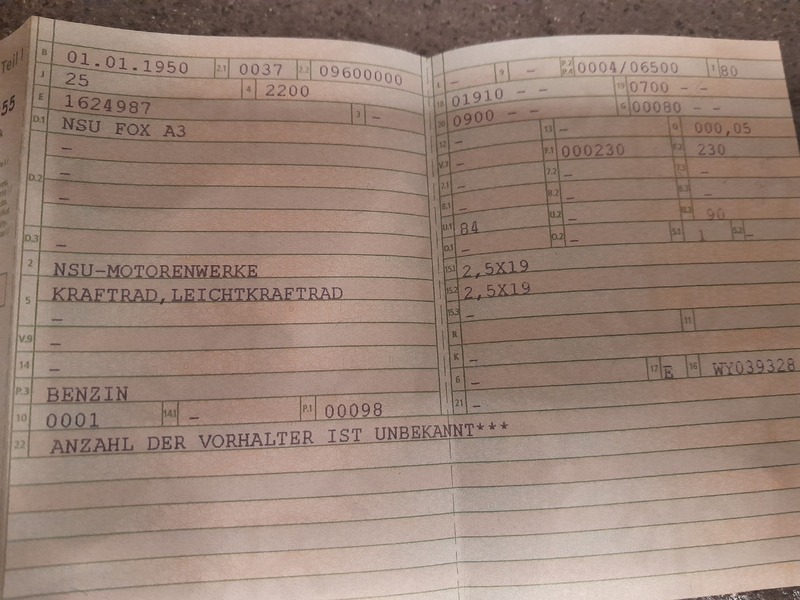 Teil I
55
B 01.01.1950 2.1 0037 2.2 09600000
J 25 4 2200
E 1624987 3 –
D.1 NSU FOX A3
–
D.2 –
–
–
D.3 –
2 NSU-MOTORENWERKE
5 KRAFTRAD,LEICHTKRAFTRAD
–
V.9 –
14 –
P.3 BENZIN
10 0001 14.1 – P.1 00098
22 ANZAHL DER VORHALTER IST UNBEKANNT***
L – 9 – P.2 P.4 0004/06500 T 80
18 01910 – – 19 0700 – –
20 0900 – – G 00080 – –
12 – 13 – Q 000,05
V.7 – F.1 000230 F.2 230
7.1 – 7.2 – 7.3 –
8.1 – 8.2 – 8.3 –
U.1 84 U.2 – U.3 90
O.1 – O.2 – S.1 1 S.2 –
15.1 2,5X19
15.2 2,5X19
15.3 –
R 11
K –
6 – 17 E 16 WY039328
21 –